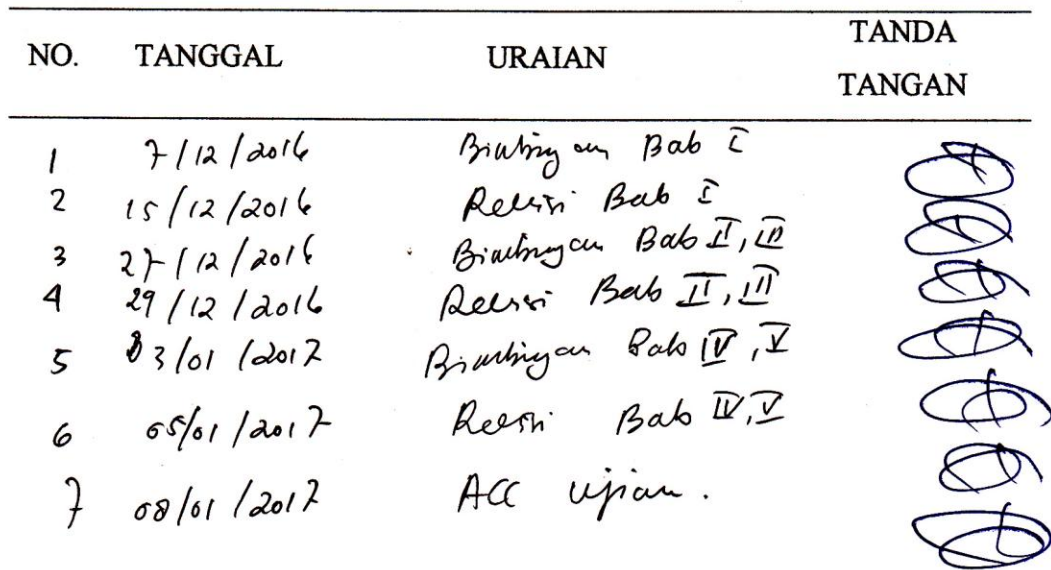 NO. TANGGAL URAIAN TANDA TANGAN
1 7/12/2016 Bimbingan Bab I
2 15/12/2016 Revisi Bab I
3 27/12/2016 Bimbingan Bab II, III
4 29/12/2016 Revisi Bab II, III
5 03/01/2017 Bimbingan Bab IV, V
6 05/01/2017 Revisi Bab IV, V
7 08/01/2017 ACC ujian.